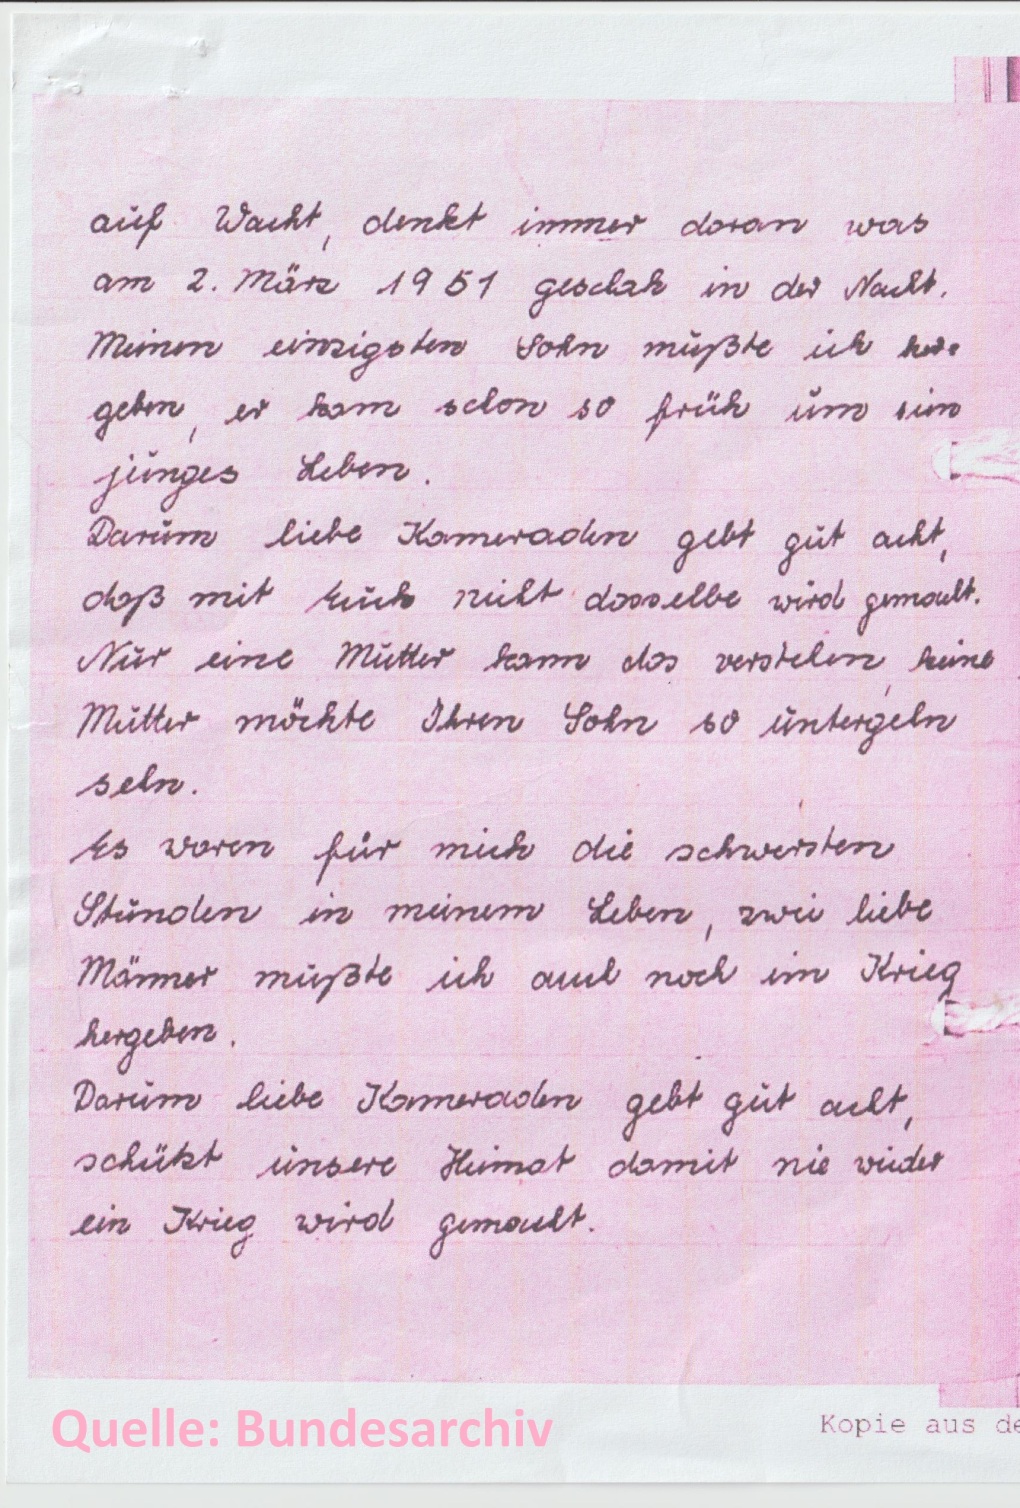 auf Wacht, denkt immer daran was
am 2. März 1951 geschah in der Nacht.
Meinen einzigsten Sohn mußte ich her-
geben, er kam schon so früh um sein
junges Leben.
Darum liebe Kameraden gebt gut acht,
daß mit Euch nicht dasselbe wird gemacht.
Nur eine Mutter kann das verstehen, keine
Mutter möchte Ihren Sohn so untergehn
sehn.
Es waren für mich die schwersten
Stunden in meinem Leben, zwei liebe
Männer mußte ich auch noch im Krieg
hergeben.
Darum liebe Kameraden gebt gut acht,
schützt unsere Heimat damit nie wieder
ein Krieg wird gemacht.
Quelle: Bundesarchiv
Kopie aus de